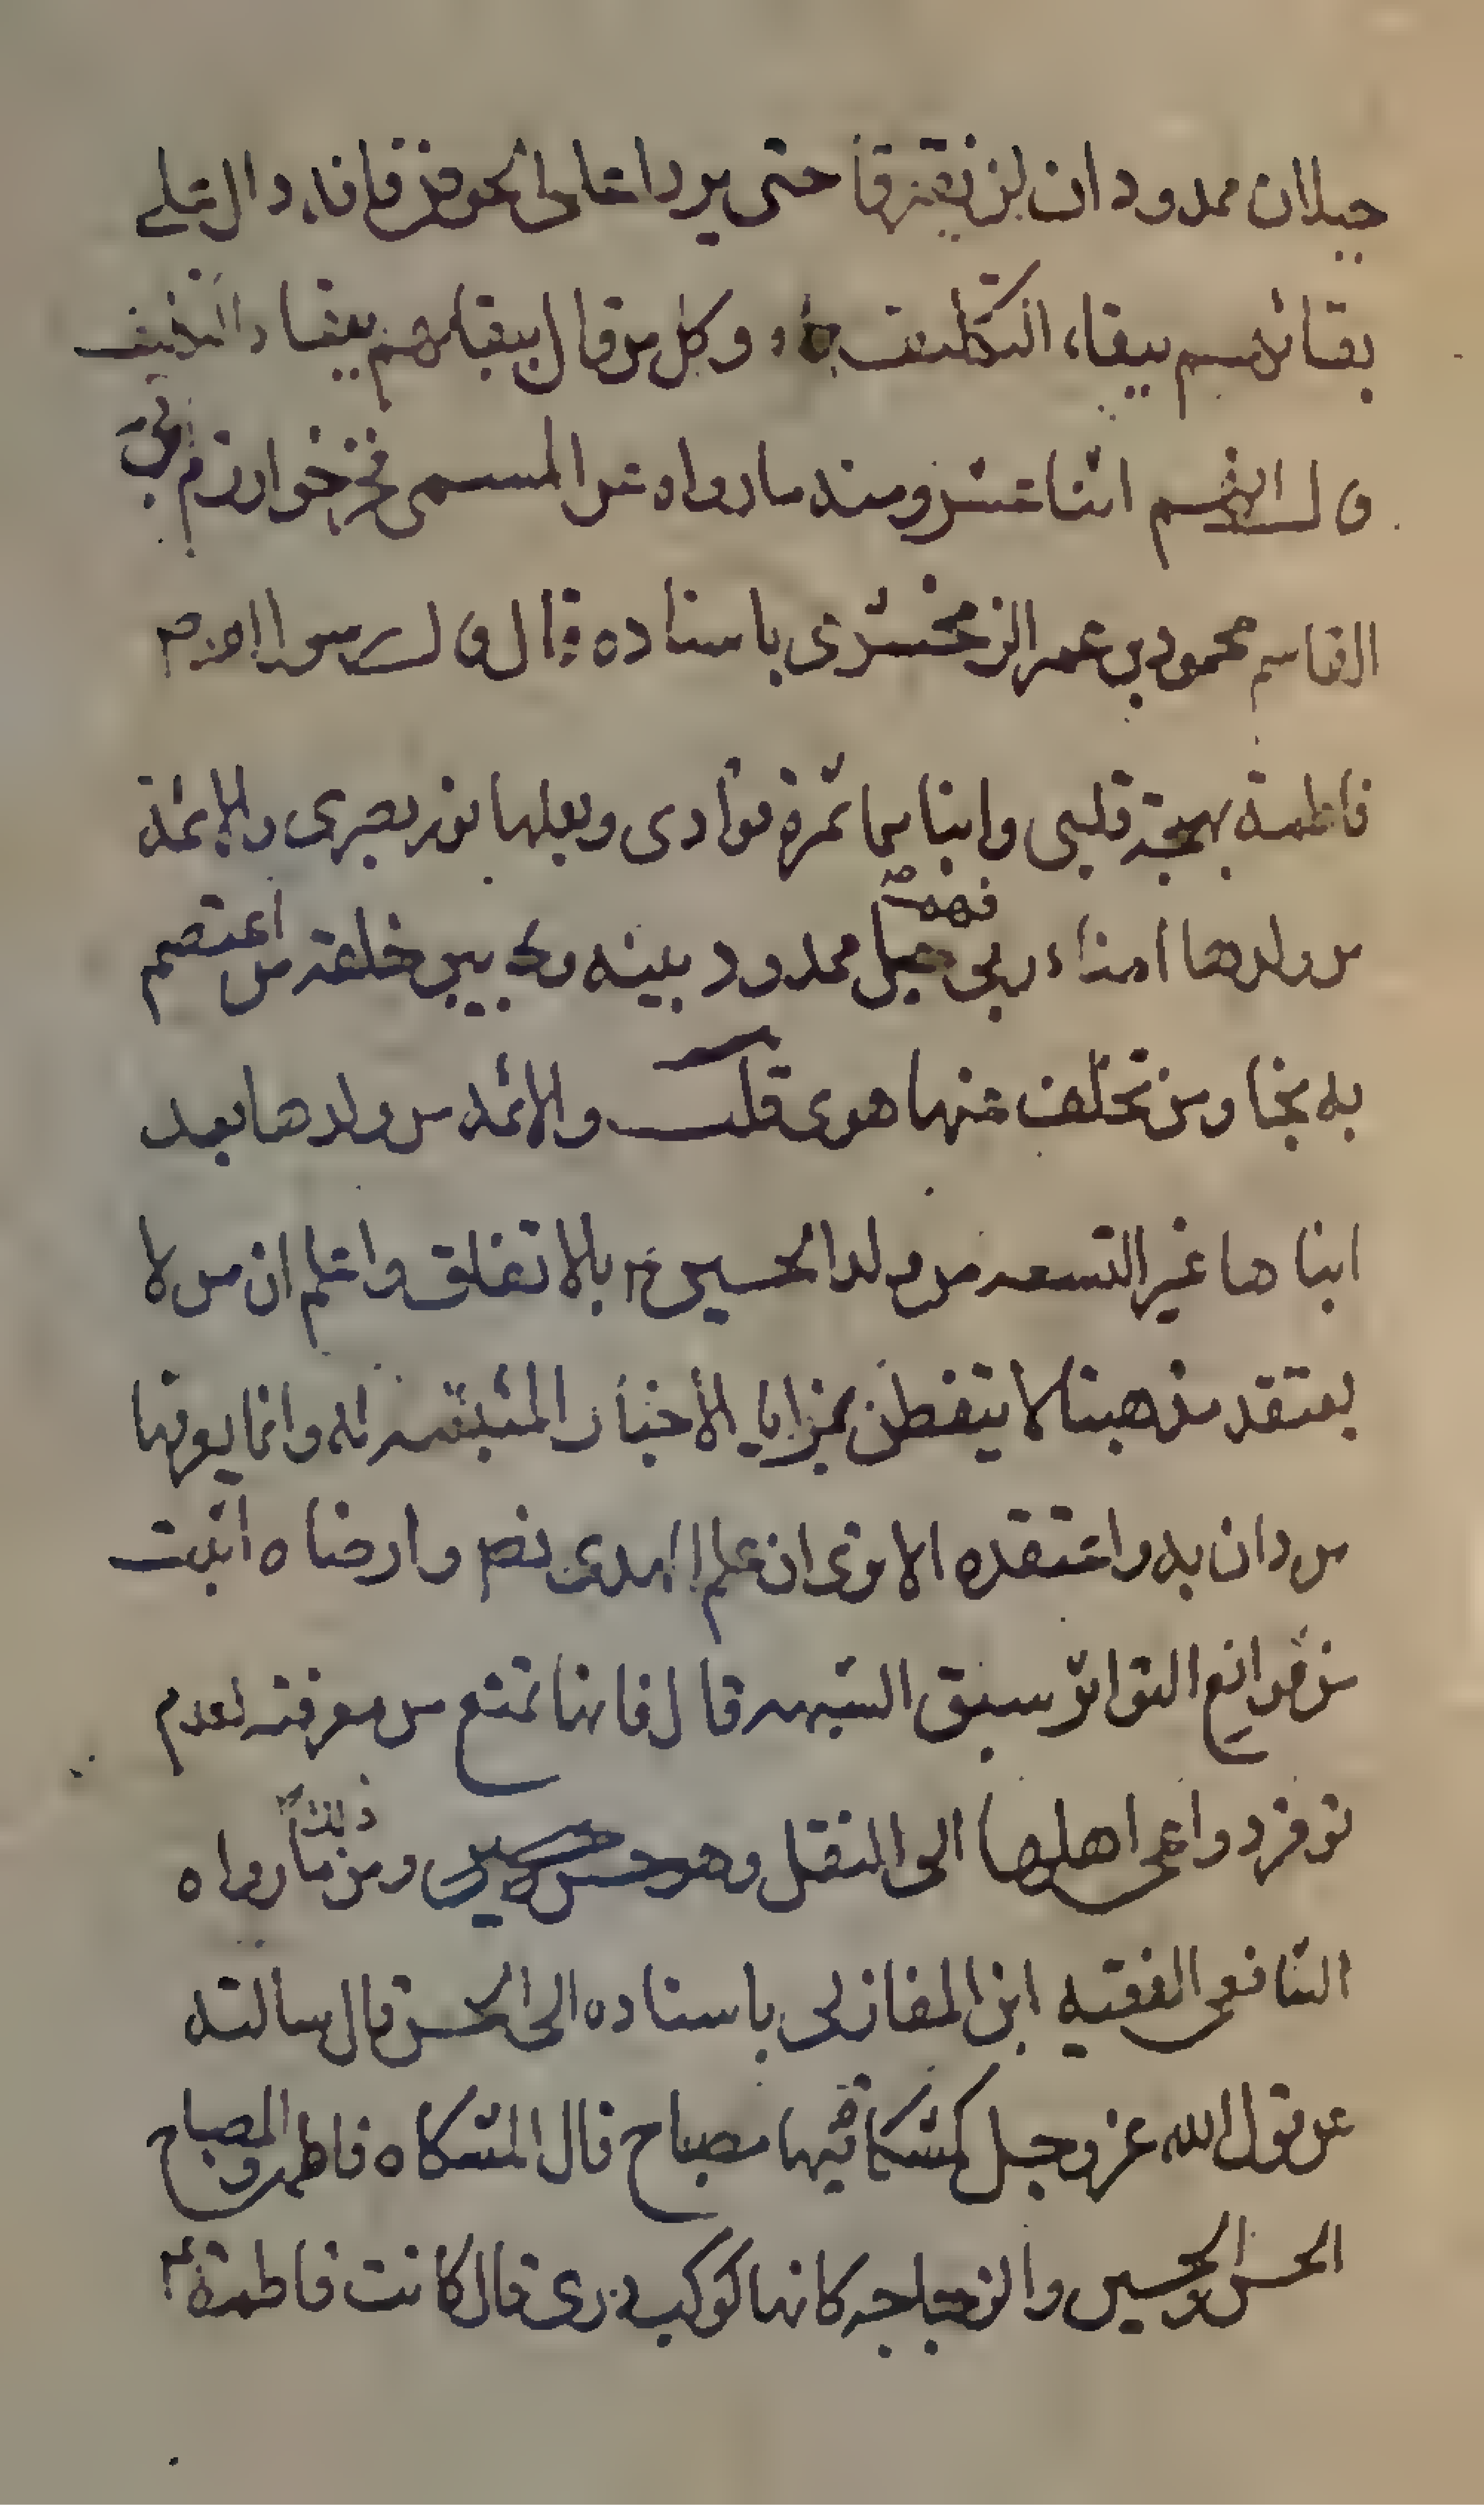 حبلان ممدودان لن يفترقا حتى يردا على الحوض فانه دال على
بقائهم ببقاء التكليف وكل من قال ببقائهم ببقاء التكليف
قال انهم اثنا عشر ومنه ما رواه عن المسمى فخر خوارزم ابى
القاسم محمود بن عمر الزمخشرى باسناده قال قال رسول الله ص
فاطمة بهجة قلبى وابناها ثمرة فؤادى وبعلها نور بصرى والائمة
من ولدها امناء ربى حبل ممدود بينه وبين خلقه من اعتصم
به نجا ومن تخلف عنها هوى قلت والائمه من ولدها بعد
ابناها غير التسعه من ولد الحسين بالاتفاق واعلم ان من لا
يعتقد مذهبنا لا يتفطن بمزايا الأخبار المثبته له وانما يعرفها
من دان به واعتقده الا ترى ان علم الهدى وارضاه اثبت
من موانع التواتر سبق الشبهه قال فانها تمنع من معرفته لعدم
توفر دواعى اهلها الى النقل وهو حسن ومن ذلك ما رواه
الشافعى الفقيه ابن المغازلى باسناده الى الحسن قال سالته
عن قول الله عز وجل كمشكاة فيها مصباح قال المشكاه فاطمه والمصباح
الحسن والحسين والزجاجه كانها كوكب درى قال كانت فاطمة ع